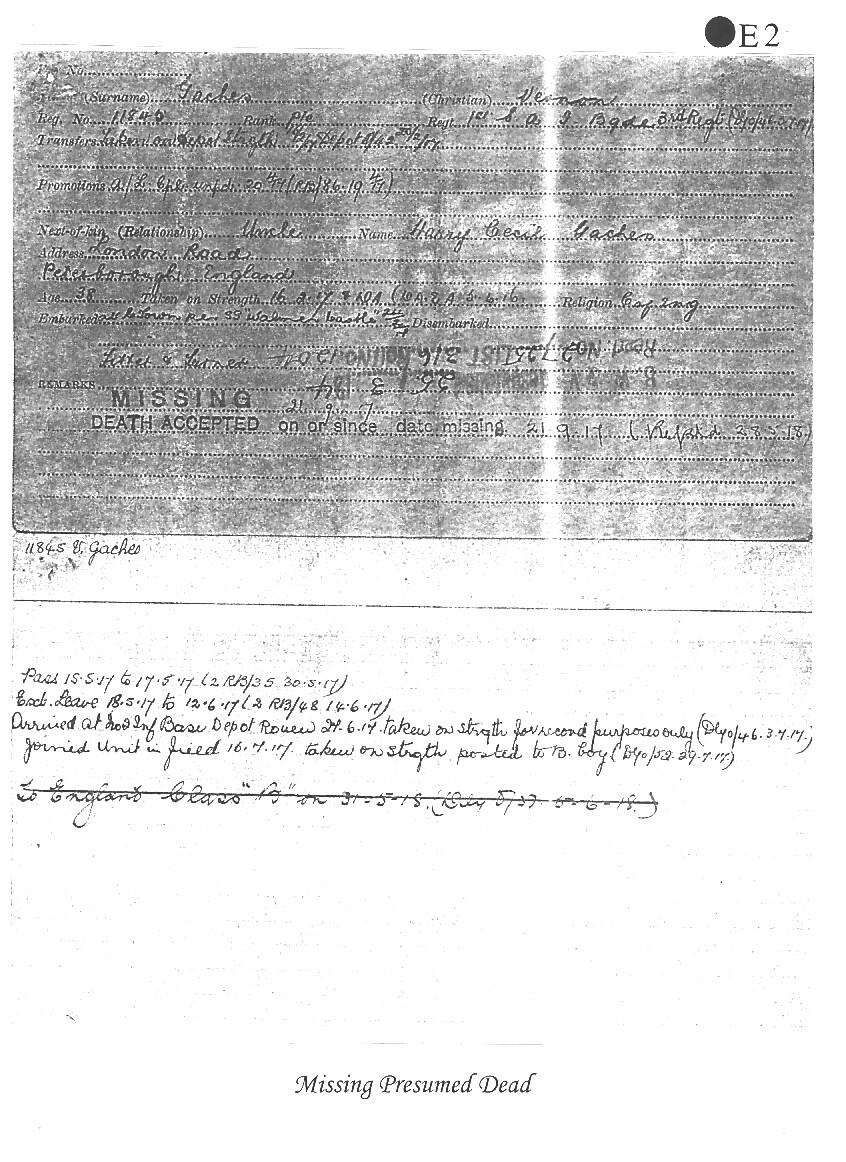 E2
Reg. No.
(Surname) Gaches (Christian) Vernon
Reg. No. 11845 Rank Pte Regt. 1st S. A. I. Bgde 3rd Regt (Dyo/46.3.7.17)
Transfers Taken on Depot Strgth
Promotions A/L. Cpl. unpd. 20 4/17 (RB/86.19. 4/17)
Next-of-kin, (Relationship) Uncle Name Harry Cecil Gaches
Address London Road
Peterborough England
Age 38 Taken on Strength 16. 2. 17. Religion C. of Eng
Embarked at C. Town per SS "Walmer Castle" Disembarked
Letter
REMARKS
MISSING
21. 9. 17
DEATH ACCEPTED on or since date missing. 21.9.17 (Repstd 28.5.18)
11845 V. Gaches
Pass 15.5.17 to 17.5.17 (2 RB/35 30.5.17)
Leave 18.5.17 to 12.6.17 (2 RB/48 14.6.17)
Arrived at Inf Base Depot Rouen 24.6.17. taken on strgth for record purposes only (Dyo/46.3.7.17.)
Joined Unit in field 16.7.17. taken on strgth posted to B. Coy (Dyo/52.29.7.17)
To England Class "B" on 31-5-18. (Dly 6-6-18.)
Missing Presumed Dead